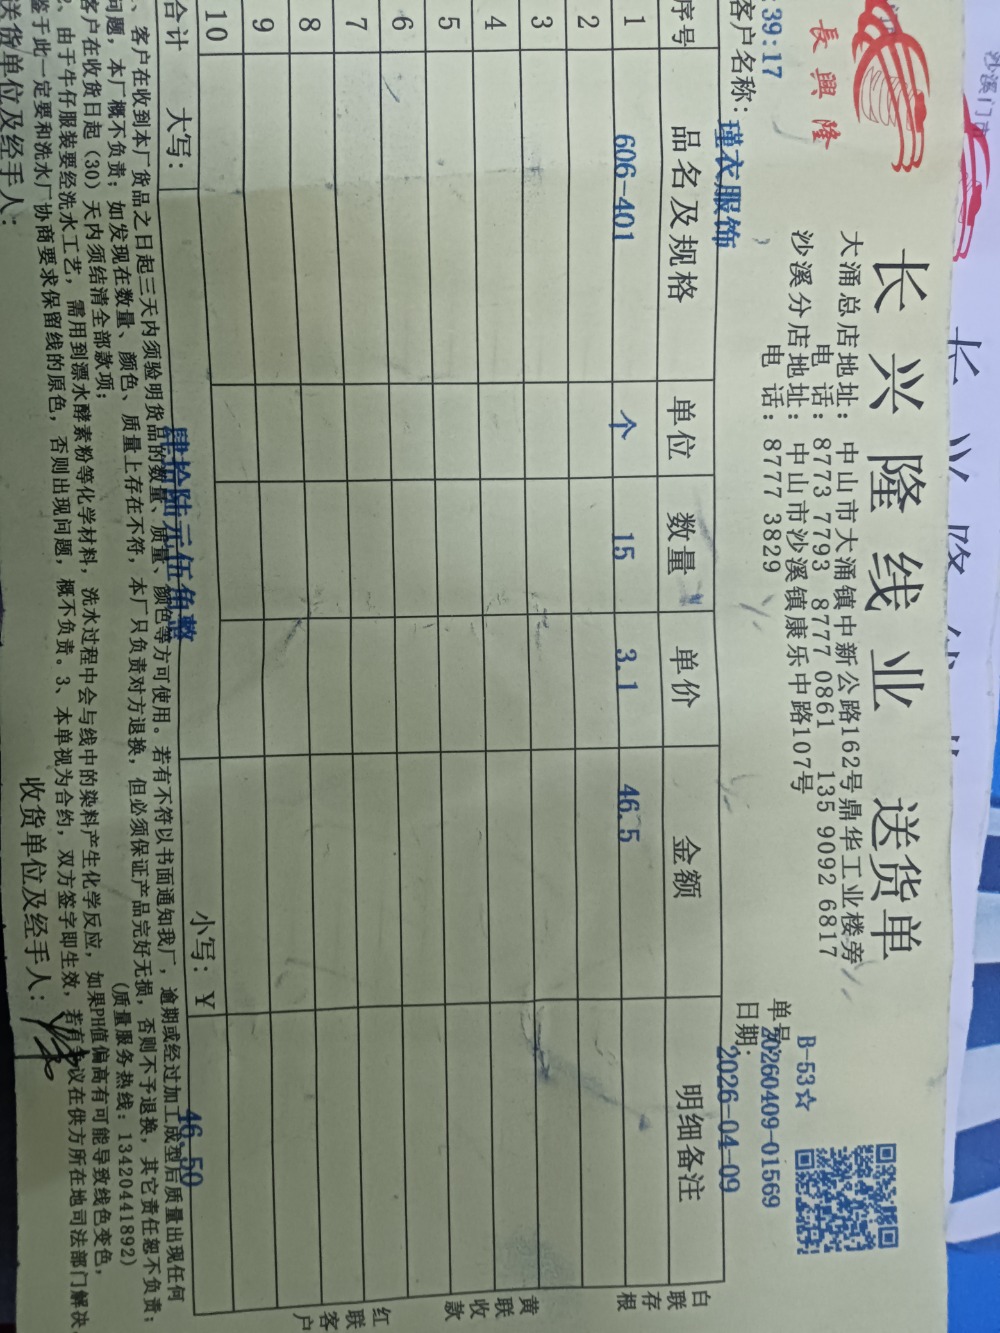 長興隆
长兴隆线业 送货单
大涌总店地址：中山市大涌镇中新公路162号鼎华工业楼旁
电话：8773 7793 8777 0861 135 9092 6817
沙溪分店地址：中山市沙溪镇康乐中路107号
电话：8777 3829
B-53☆
单号：20260409-01569
:39:17
客户名称：瑾衣服饰
日期：2026-04-09
序号 品名及规格 单位 数量 单价 金额 明细备注
1 606-401 个 15 3.1 46.5
2
3
4
5
6
7
8
9
10
合计 大写：肆拾陆元伍角整 小写：￥46.50
白联存根
黄联收款
红联客户
、客户在收到本厂货品之日起三天内须验明货品的数量、质量、颜色等方可使用。若有不符以书面通知我厂，逾期或经过加工成型后质量出现任何
问题，本厂概不负责；如发现在数量、颜色、质量上存在不符，本厂只负责对方退换，但必须保证产品完好无损，否则不予退换，其它责任恕不负责；
客户在收货日起（30）天内须结清全部款项； （质量服务热线：13420441892）
2、由于牛仔服装要经洗水工艺，需用到漂水酵素粉等化学材料，洗水过程中会与线中的染料产生化学反应，如果PH值偏高有可能导致线色变色，
鉴于此一定要和洗水厂协商要求保留线的原色，否则出现问题，概不负责。3、本单视为合约，双方签字即生效，若有争议在供方所在地司法部门解决
送货单位及经手人： 收货单位及经手人：
沙溪门
长兴隆